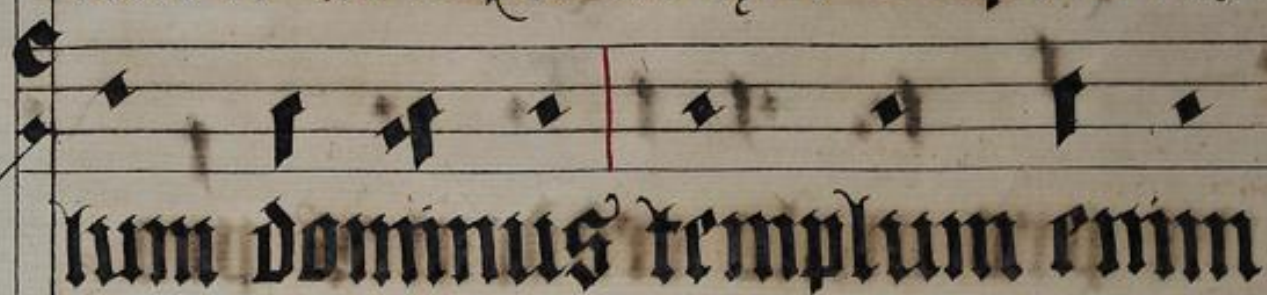 lum dominus templum enim